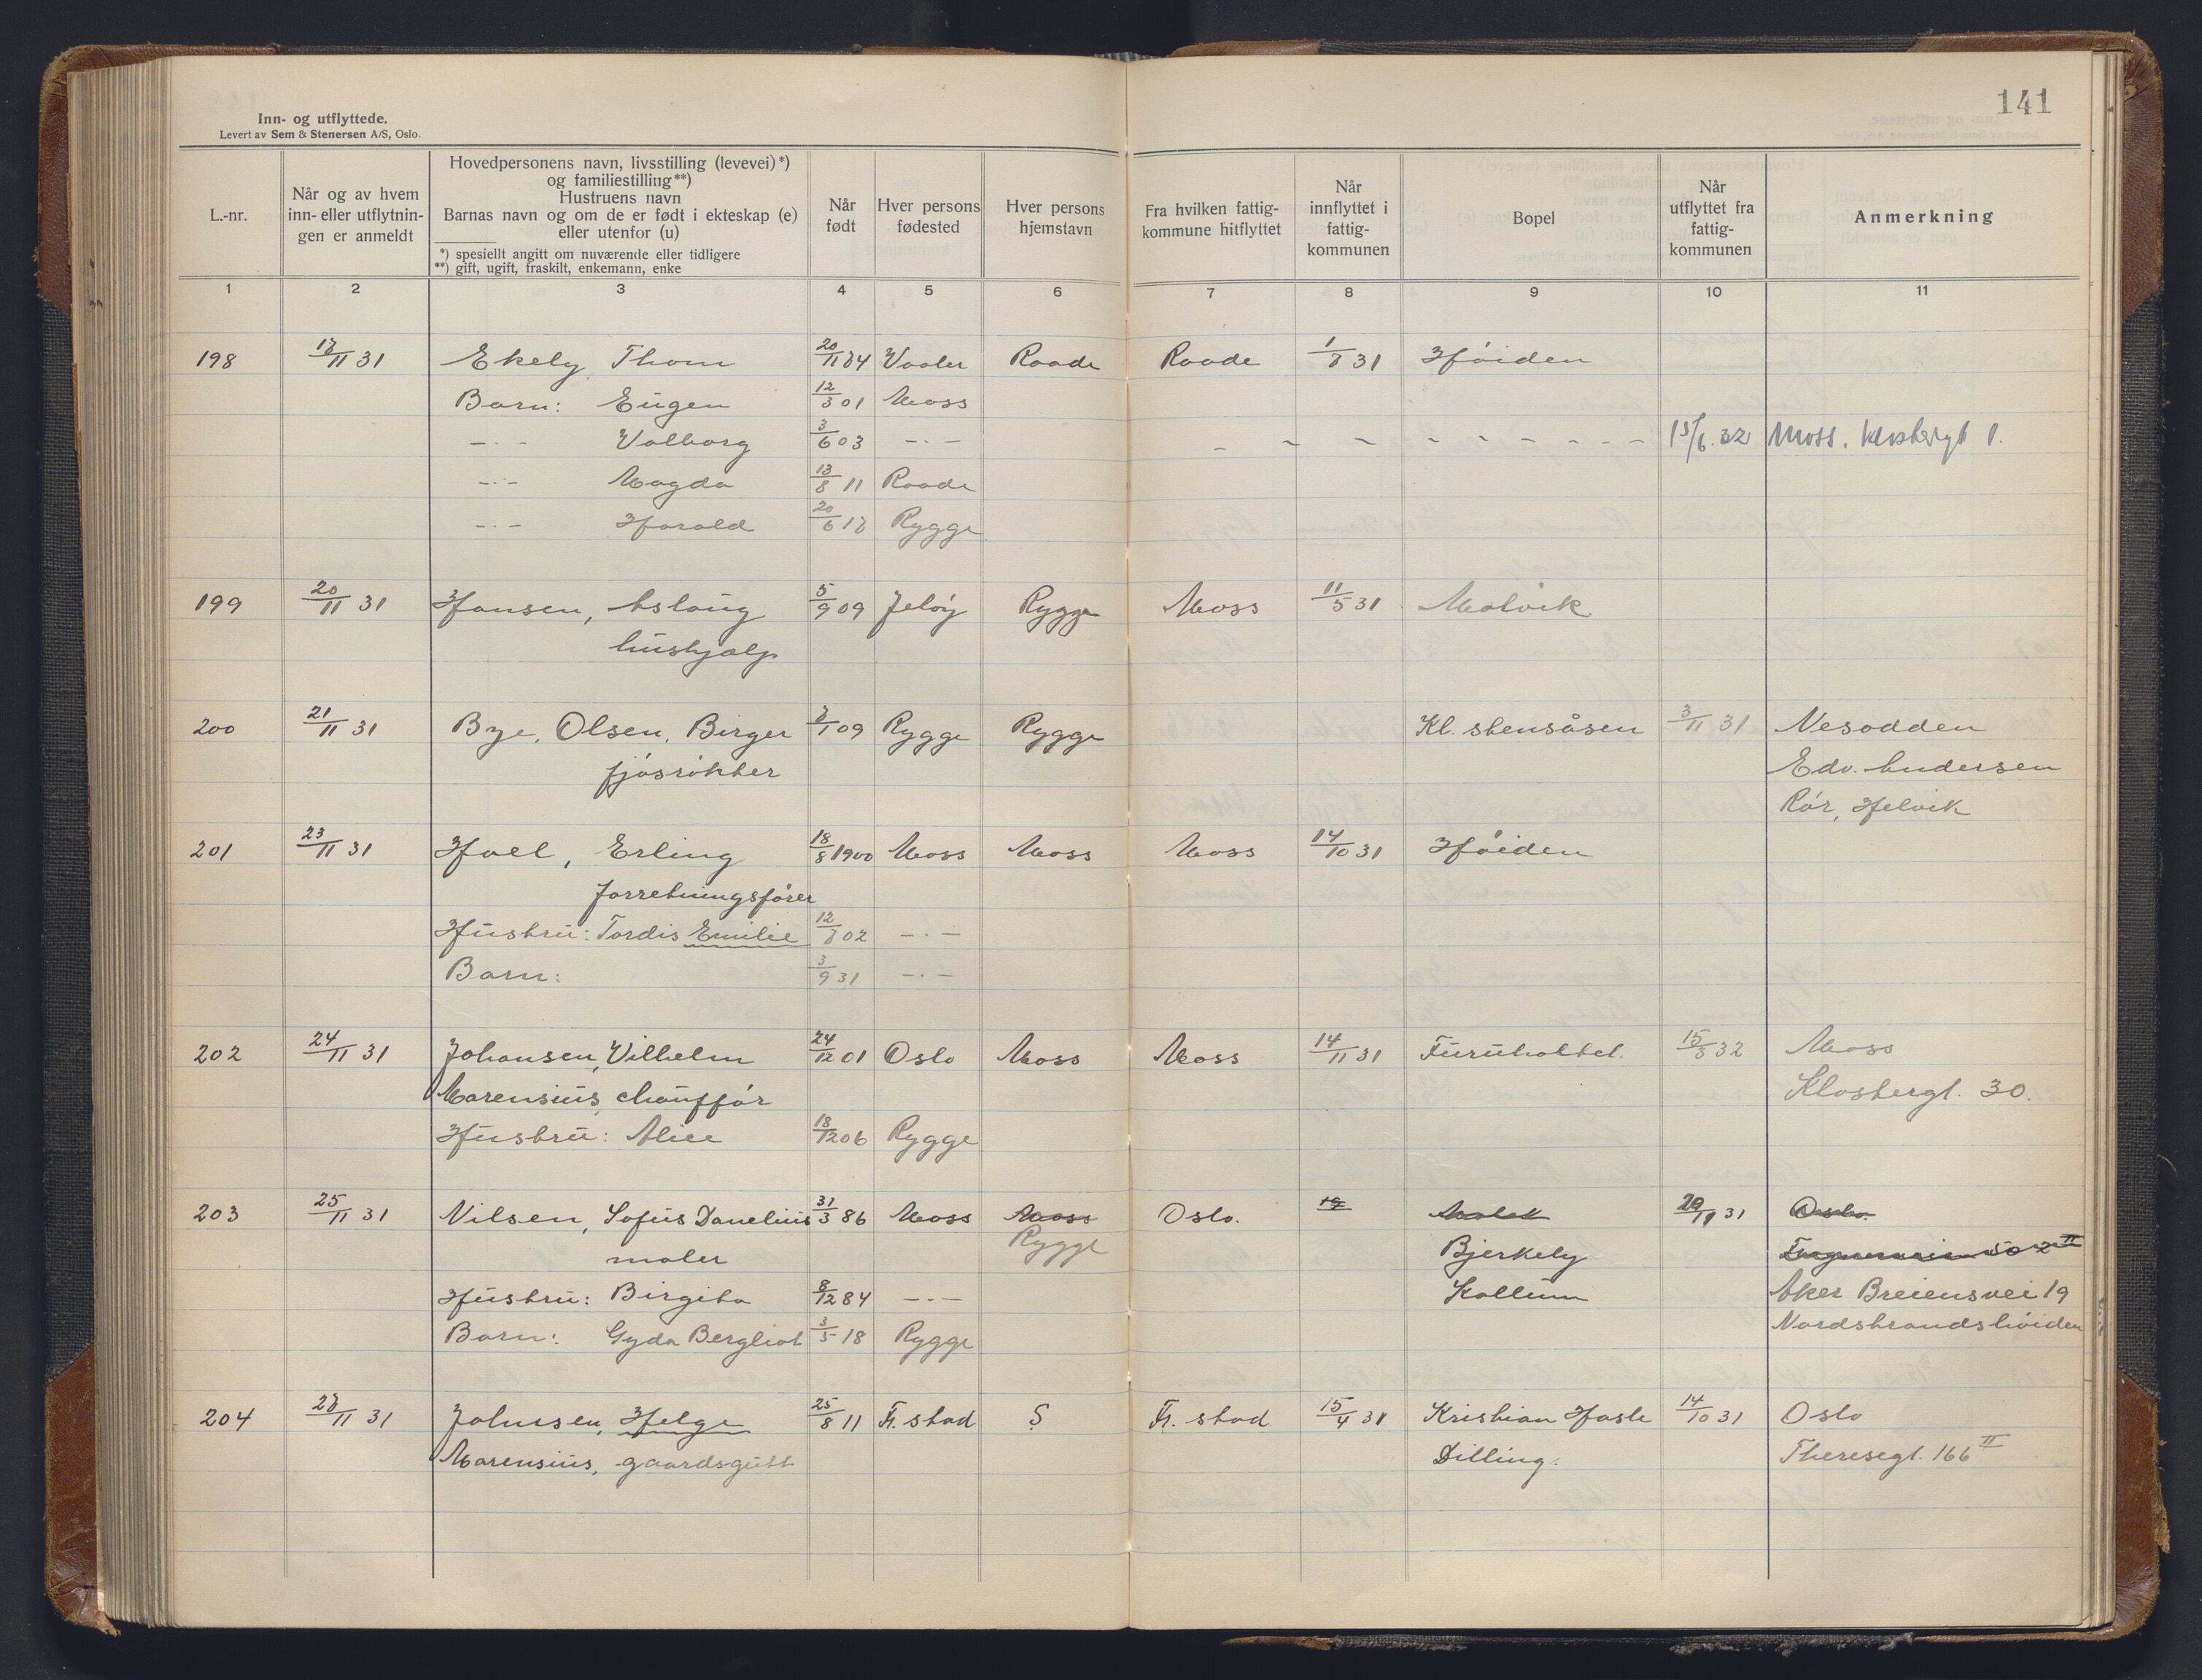 141
Inn- og utflyttede.
Levert av Sem & Stenersen A/S, Oslo.
L.-nr.
Når og av hvem inn- eller utflytnin- gen er anmeldt
Hovedpersonens navn, livsstilling (levevei)*)
og familiestilling**)
Hustruens navn
Barnas navn og om de er født i ekteskap (e)
eller utenfor (u)
*) spesiellt angitt om nuværende eller tidligere
**) gift, ugift, fraskilt, enkemann, enke
Når født
Hver persons fødested
Hver persons hjemstavn
Fra hvilken fattig- kommune hitflyttet
Når innflyttet i fattig- kommunen
Bopel
Når utflyttet fra fattig- kommunen
Anmerkning
1 2 3 4 5 6 7 8 9 10 11
198 18/11 31 Ekely, Thom 20/11 84 Vaaler Raade Raade 1/8 31 Høiden
Barn: Eugen 12/3 01 Moss
-·- Valborg 3/6 03 -·- - - - - - - - - - 15/6.32 Moss. 1.
-·- Magda 13/8 11 Raade
-·- Harald 20/6 18 Rygge
199 20/11 31 Hansen, Aslaug 5/9 09 Jeløy Rygge Moss 11/5 31 Molvik
hushjælp
200 21/11 31 Bye, Olsen, Birger 7/1 09 Rygge Rygge Kl. stensåsen 3/11 31 Nesodden
fjøsrøkter Edv. Andersen
Rør, Helvik
201 23/11 31 Hoel, Erling 18/8 1900 Moss Moss Moss 14/10 31 Høiden
forretningsfører
Hustru: Tordis Emilie 12/8 02 -·-
Barn: 3/9 31 -·-
202 24/11 31 Johansen, Vilhelm 24/12 01 Oslo Moss Moss 14/11 31 Furuholtet. 15/3 32 Moss
Marensius, chauffør Klostergt. 30.
Hustru: Alice 18/12 06 Rygge
203 25/11 31 Nilsen, Sofus Danelius 31/3 86 Moss Moss Oslo. 19 20/11 31 Oslo.
maler Rygge Bjerkely 50 2 II
Hustru: Birgita 8/12 84 -·- Kallum Aker Breiensvei 19
Barn: Gyda Bergliot 3/5 18 Rygge Nordstrandshøiden
204 28/11 31 Johnsen, Helge 25/8 11 Fr. stad ? Fr. stad 15/4 31 Kristian Hasle 14/10 31 Oslo
Marensius, gaardsgutt Dilling. Theresegt. 166 II